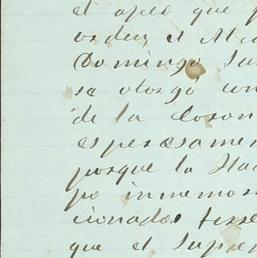 el apeo que
orden el Al
Domingo
sa otorgó con
de la Coron
espresamen
porque la Hac
po inmemor
cionados
que el Suprem